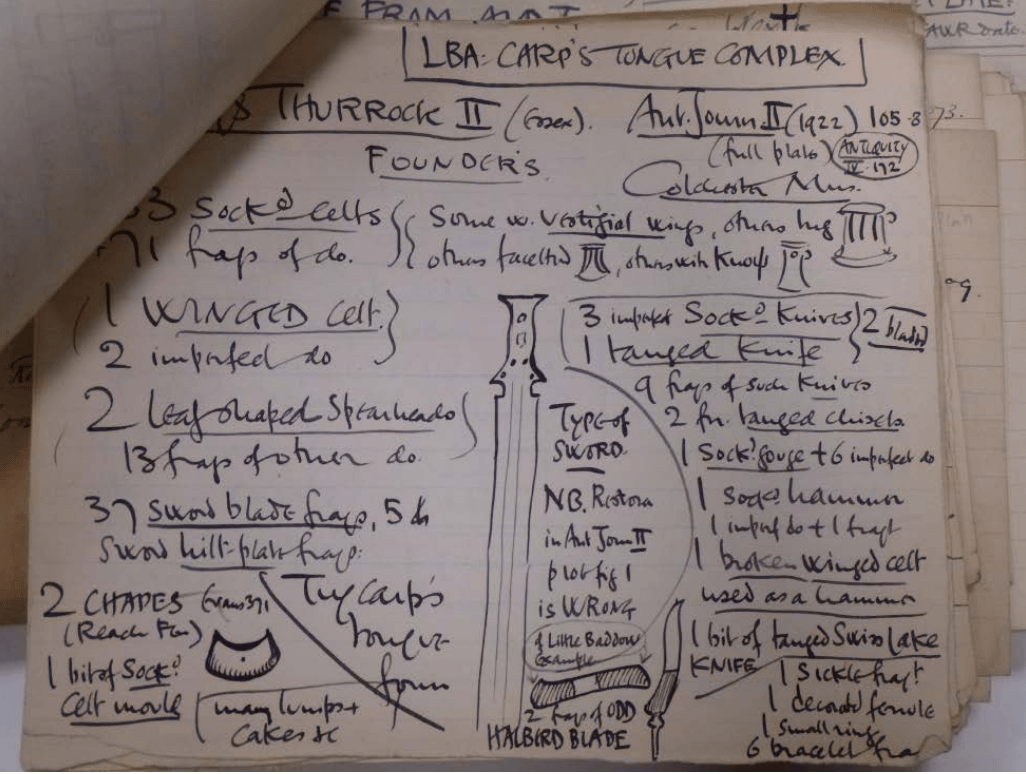 LBA: CARP'S TONGUE COMPLEX
THURROCK II (Essex). Ant. Journ. II (1922) 105-8
(full plate) ANTIQUITY
IV. 192
FOUNDER'S
Colchester Mus.
3 Sockd Celts
71 frags of do.
Some w. vestigial wings, others leg
others facetted, others with Knobs
1 WINGED Celt
2 imperfect do
2 Leaf shaped Spearheads
13 frags of other do.
37 Sword blade frags, 5 do
Sword hilt-plate frags.
Try Carp's
Tongue
form
2 CHAPES Evans 371
(Reach Fen)
1 bit of Sockd
Celt mould
many lumps +
Cakes &c
TYPE of
SWORD
NB. Restora
in Ant Journ II
plot fig 1
is WRONG
cf Little Baddow
Example
2 frags of ODD
HALBIRD BLADE
3 imperfect Sockd Knives
1 tanged Knife
2 blades
9 frags of such Knives
2 fr. tanged chisels
1 Sockd gouge + 6 imperfect do
1 sockd hammer
1 imperf do + 1 fragt
1 broken winged celt
used as a hammer
1 bit of tanged Swiss Lake
KNIFE
1 Sickle fragt
1 decorated ferrule
1 small ring
6 bracelet fra
73.